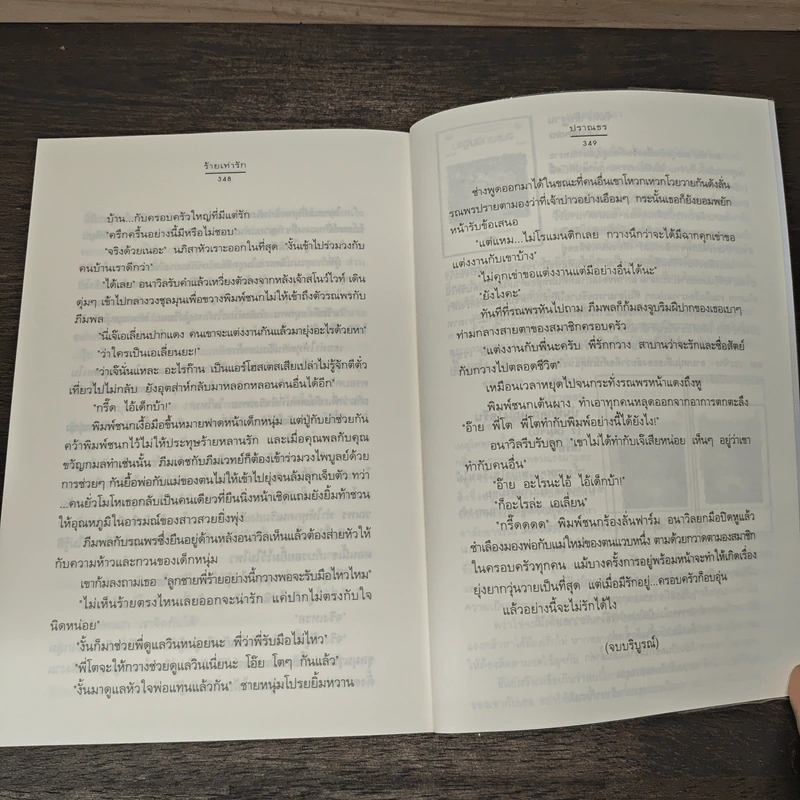 ร้ายเท่ารัก
348
บ้าน...กับครอบครัวใหญ่ที่มีแต่รัก
"ครึกครื้นอย่างนี้มีหรือไม่ชอบ"
"จริงด้วยเนอะ" นภิสาหัวเราะออกในที่สุด "งั้นเข้าไปร่วมวงกับ
คนบ้านเราดีกว่า"
"ได้เลย" อนาวิลรับคำแล้วเหวี่ยงตัวลงจากหลังเจ้าสโนว์ไวท์ เดิน
ดุ่มๆ เข้าไปกลางวงชุลมุนเพื่อขวางพิมพ์ชนกไม่ให้เข้าถึงตัวรณพรกับ
ภีมพล
"นี่เจ๊เอเลี่ยนปากแดง คนเขาจะแต่งงานกันแล้วมายุ่งอะไรด้วยหา"
"ว่าใครเป็นเอเลี่ยนยะ!"
"ว่าเจ๊นั่นแหละ อะไรก๊าน เป็นแอร์โฮสเตสเสียเปล่าไม่รู้จักตีตั๋ว
เที่ยวไปไม่กลับ ยังอุตส่าห์กลับมาหลอกหลอนคนอื่นได้อีก"
"กรี๊ด ไอ้เด็กบ้า!"
พิมพ์ชนกเงื้อมือขึ้นหมายฟาดหน้าเด็กหนุ่ม แต่ปู่กับย่าช่วยกัน
คว้าพิมพ์ชนกไว้ไม่ให้ประทุษร้ายหลานรัก และเมื่อคุณพลกับคุณ
ขวัญกมลทำเช่นนั้น ภีมเดชกับภีมเวทย์ก็ต้องเข้าร่วมวงไพบูลย์ด้วย
การช่วยๆ กันยื้อพ่อกับแม่ของตนไม่ให้เข้าไปยุ่งจนล้มลุกเจ็บตัว ทว่า
...คนยั่วโมโหเธอกลับเป็นคนเดียวที่ยืนนิ่งหน้าเชิดแถมยังยิ้มท้าชวน
ให้อุณหภูมิในอารมณ์ของสาวสวยยิ่งพุ่ง
ภีมพลกับรณพรซึ่งยืนอยู่ด้านหลังอนาวิลเห็นแล้วต้องส่ายหัวให้
กับความห้าวและกวนของเด็กหนุ่ม
เขาก้มลงถามเธอ "ลูกชายพี่ร้ายอย่างนี้กวางพอจะรับมือไหวไหม"
"ไม่เห็นร้ายตรงไหนเลยออกจะน่ารัก แค่ปากไม่ตรงกับใจ
นิดหน่อย"
"งั้นก็มาช่วยพี่ดูแลวินหน่อยนะ พี่ว่าพี่รับมือไม่ไหว"
"พี่โตจะให้กวางช่วยดูแลวินเนี่ยนะ โอ๊ย โตๆ กันแล้ว"
"งั้นมาดูแลหัวใจพ่อแทนแล้วกัน" ชายหนุ่มโปรยยิ้มหวาน
ปราณธร
349
ช่างพูดออกมาได้ในขณะที่คนอื่นเขาโหวกเหวกโวยวายกันดังลั่น
รณพรปรายตามองว่าที่เจ้าบ่าวอย่างเอือมๆ กระนั้นเธอก็ยังยอมพยัก
หน้ารับข้อเสนอ
"แต่แหม...ไม่โรแมนติกเลย กวางนึกว่าจะได้มีฉากคุกเข่าขอ
แต่งงานกับเขาบ้าง"
"ไม่คุกเข่าขอแต่งงานแต่มีอย่างอื่นได้นะ"
"ยังไงคะ"
ทันทีที่รณพรหันไปถาม ภีมพลก็ก้มลงจูบริมฝีปากของเธอเบาๆ
ท่ามกลางสายตาของสมาชิกครอบครัว
"แต่งงานกับพี่นะครับ พี่รักกวาง สาบานว่าจะรักและซื่อสัตย์
กับกวางไปตลอดชีวิต"
เหมือนเวลาหยุดไปจนกระทั่งรณพรหน้าแดงถึงหู
พิมพ์ชนกเต้นผาง ทำเอาทุกคนหลุดออกจากอาการตกตะลึง
"อ๊าย พี่โต พี่โตทำกับพิมพ์อย่างนี้ได้ยังไง!"
อนาวิลรีบรับลูก "เขาไม่ได้ทำกับเจ๊เสียหน่อย เห็นๆ อยู่ว่าเขา
ทำกับคนอื่น"
"อ๊าย อะไรนะไอ้ ไอ้เด็กบ้า!"
"ก็อะไรล่ะ เอเลี่ยน"
"กรี๊ดดดด" พิมพ์ชนกร้องลั่นฟาร์ม อนาวิลยกมือปิดหูแล้ว
ชำเลืองมองพ่อกับแม่ใหม่ของตนแวบหนึ่ง ตามด้วยกวาดตามองสมาชิก
ในครอบครัวทุกคน แม้บางครั้งการอยู่พร้อมหน้าจะทำให้เกิดเรื่อง
ยุ่งยากวุ่นวายเป็นที่สุด แต่เมื่อมีรักอยู่...ครอบครัวก็อบอุ่น
แล้วอย่างนี้จะไม่รักได้ไง
(จบบริบูรณ์)